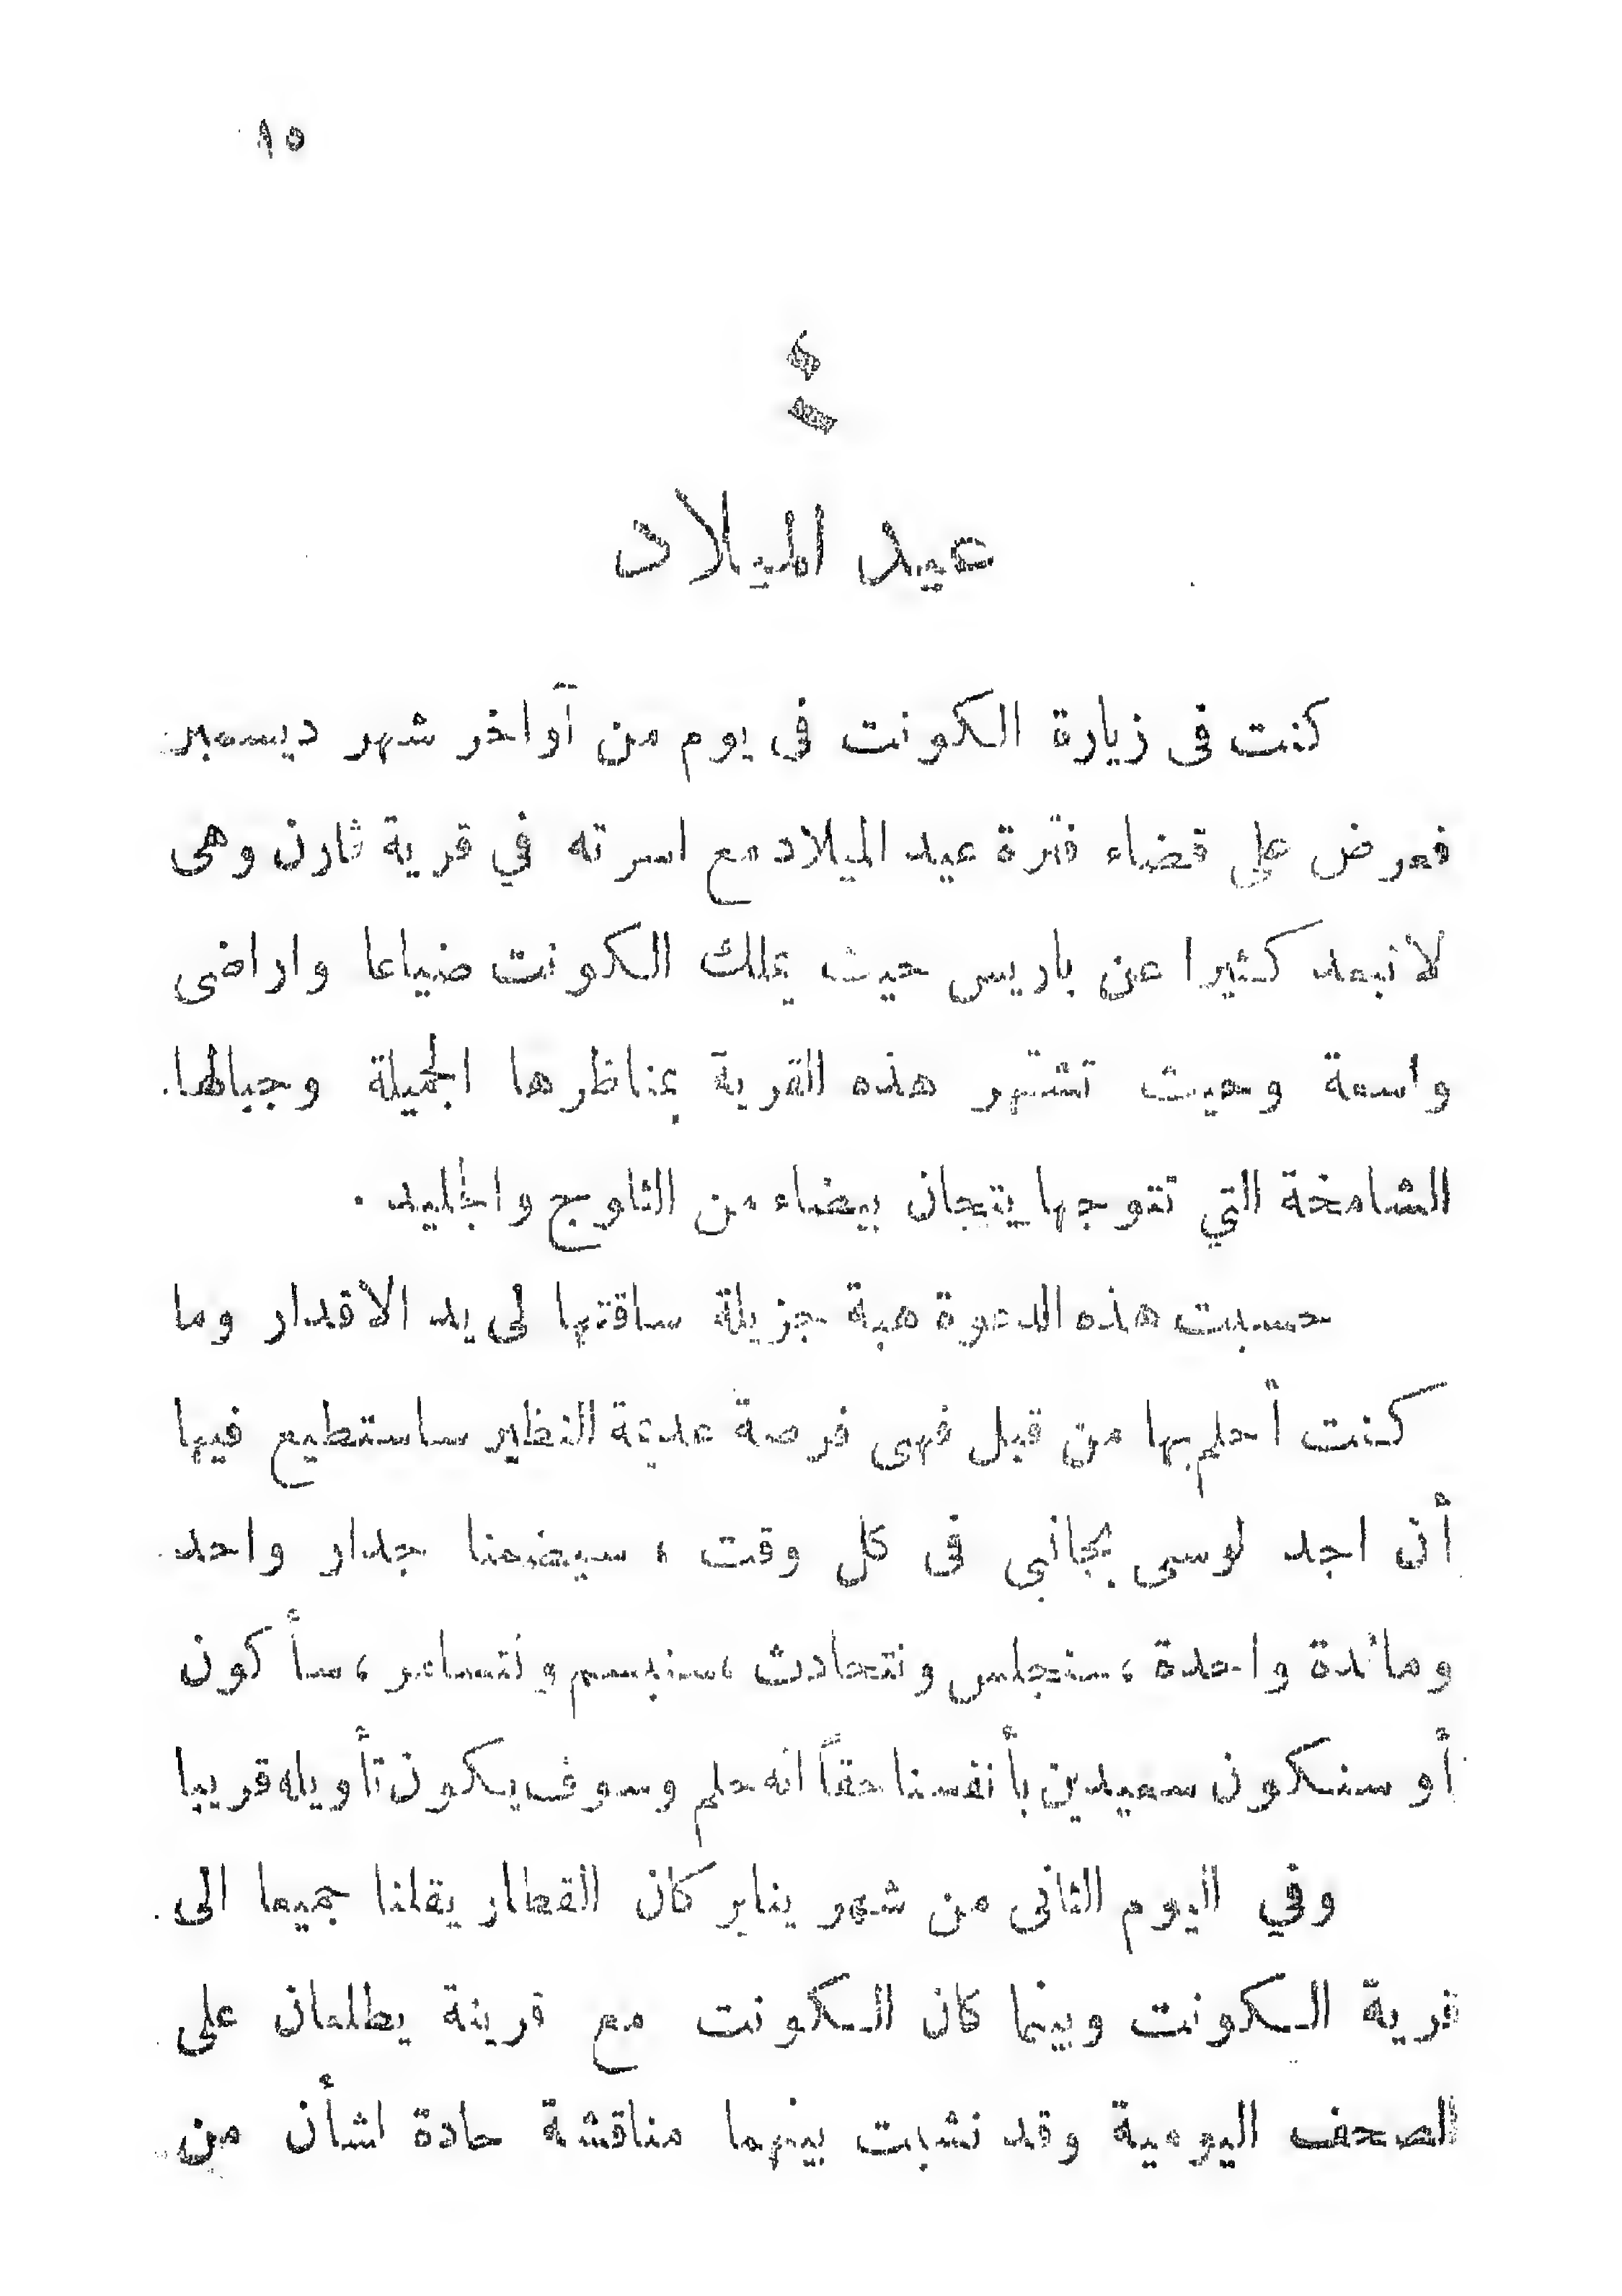 ١٥
٤
عيد الميلاد
كنت فى زيارة الكونت فى يوم من آواخر شهر ديسمبر
فعرض على قضاء فترة عيد الميلاد مع اسرته في قرية ثارن وهى
لا تبعد كثيرا عن باريس حيث يملك الكونت ضياعا واراضى
واسعة وحيث تشتهر هذه القرية بمناظرها الجميلة وجبالها
الشامخة التي تتوجها يتيجان بيضاء من الثلوج والجليد .
حسبت هذه الدعوة هبة جزيلة ساقتها لى يد الاقدار وما
كنت أحلم بها من قبل فهى فرصة عديمة النظير ساستطيع فيها
أن اجد لوسى بجانبي فى كل وقت ، سيضمنا جدار واحد
ومائدة واحدة ، سنجلس ونتحادث ، سنبسم ونتسامر ، سأكون
أو سنكون سعيدين بأنفسنا حقاً انه حلم وسوف يكون تأويله قريبا
وفي اليوم الثانى من شهر يناير كان القطار يقلنا جميعا الى
قرية الكونت وبينما كان الكونت مع قرينة يطلعان على
الصحف اليومية وقد نشبت بينهما مناقشة حادة لشأن من